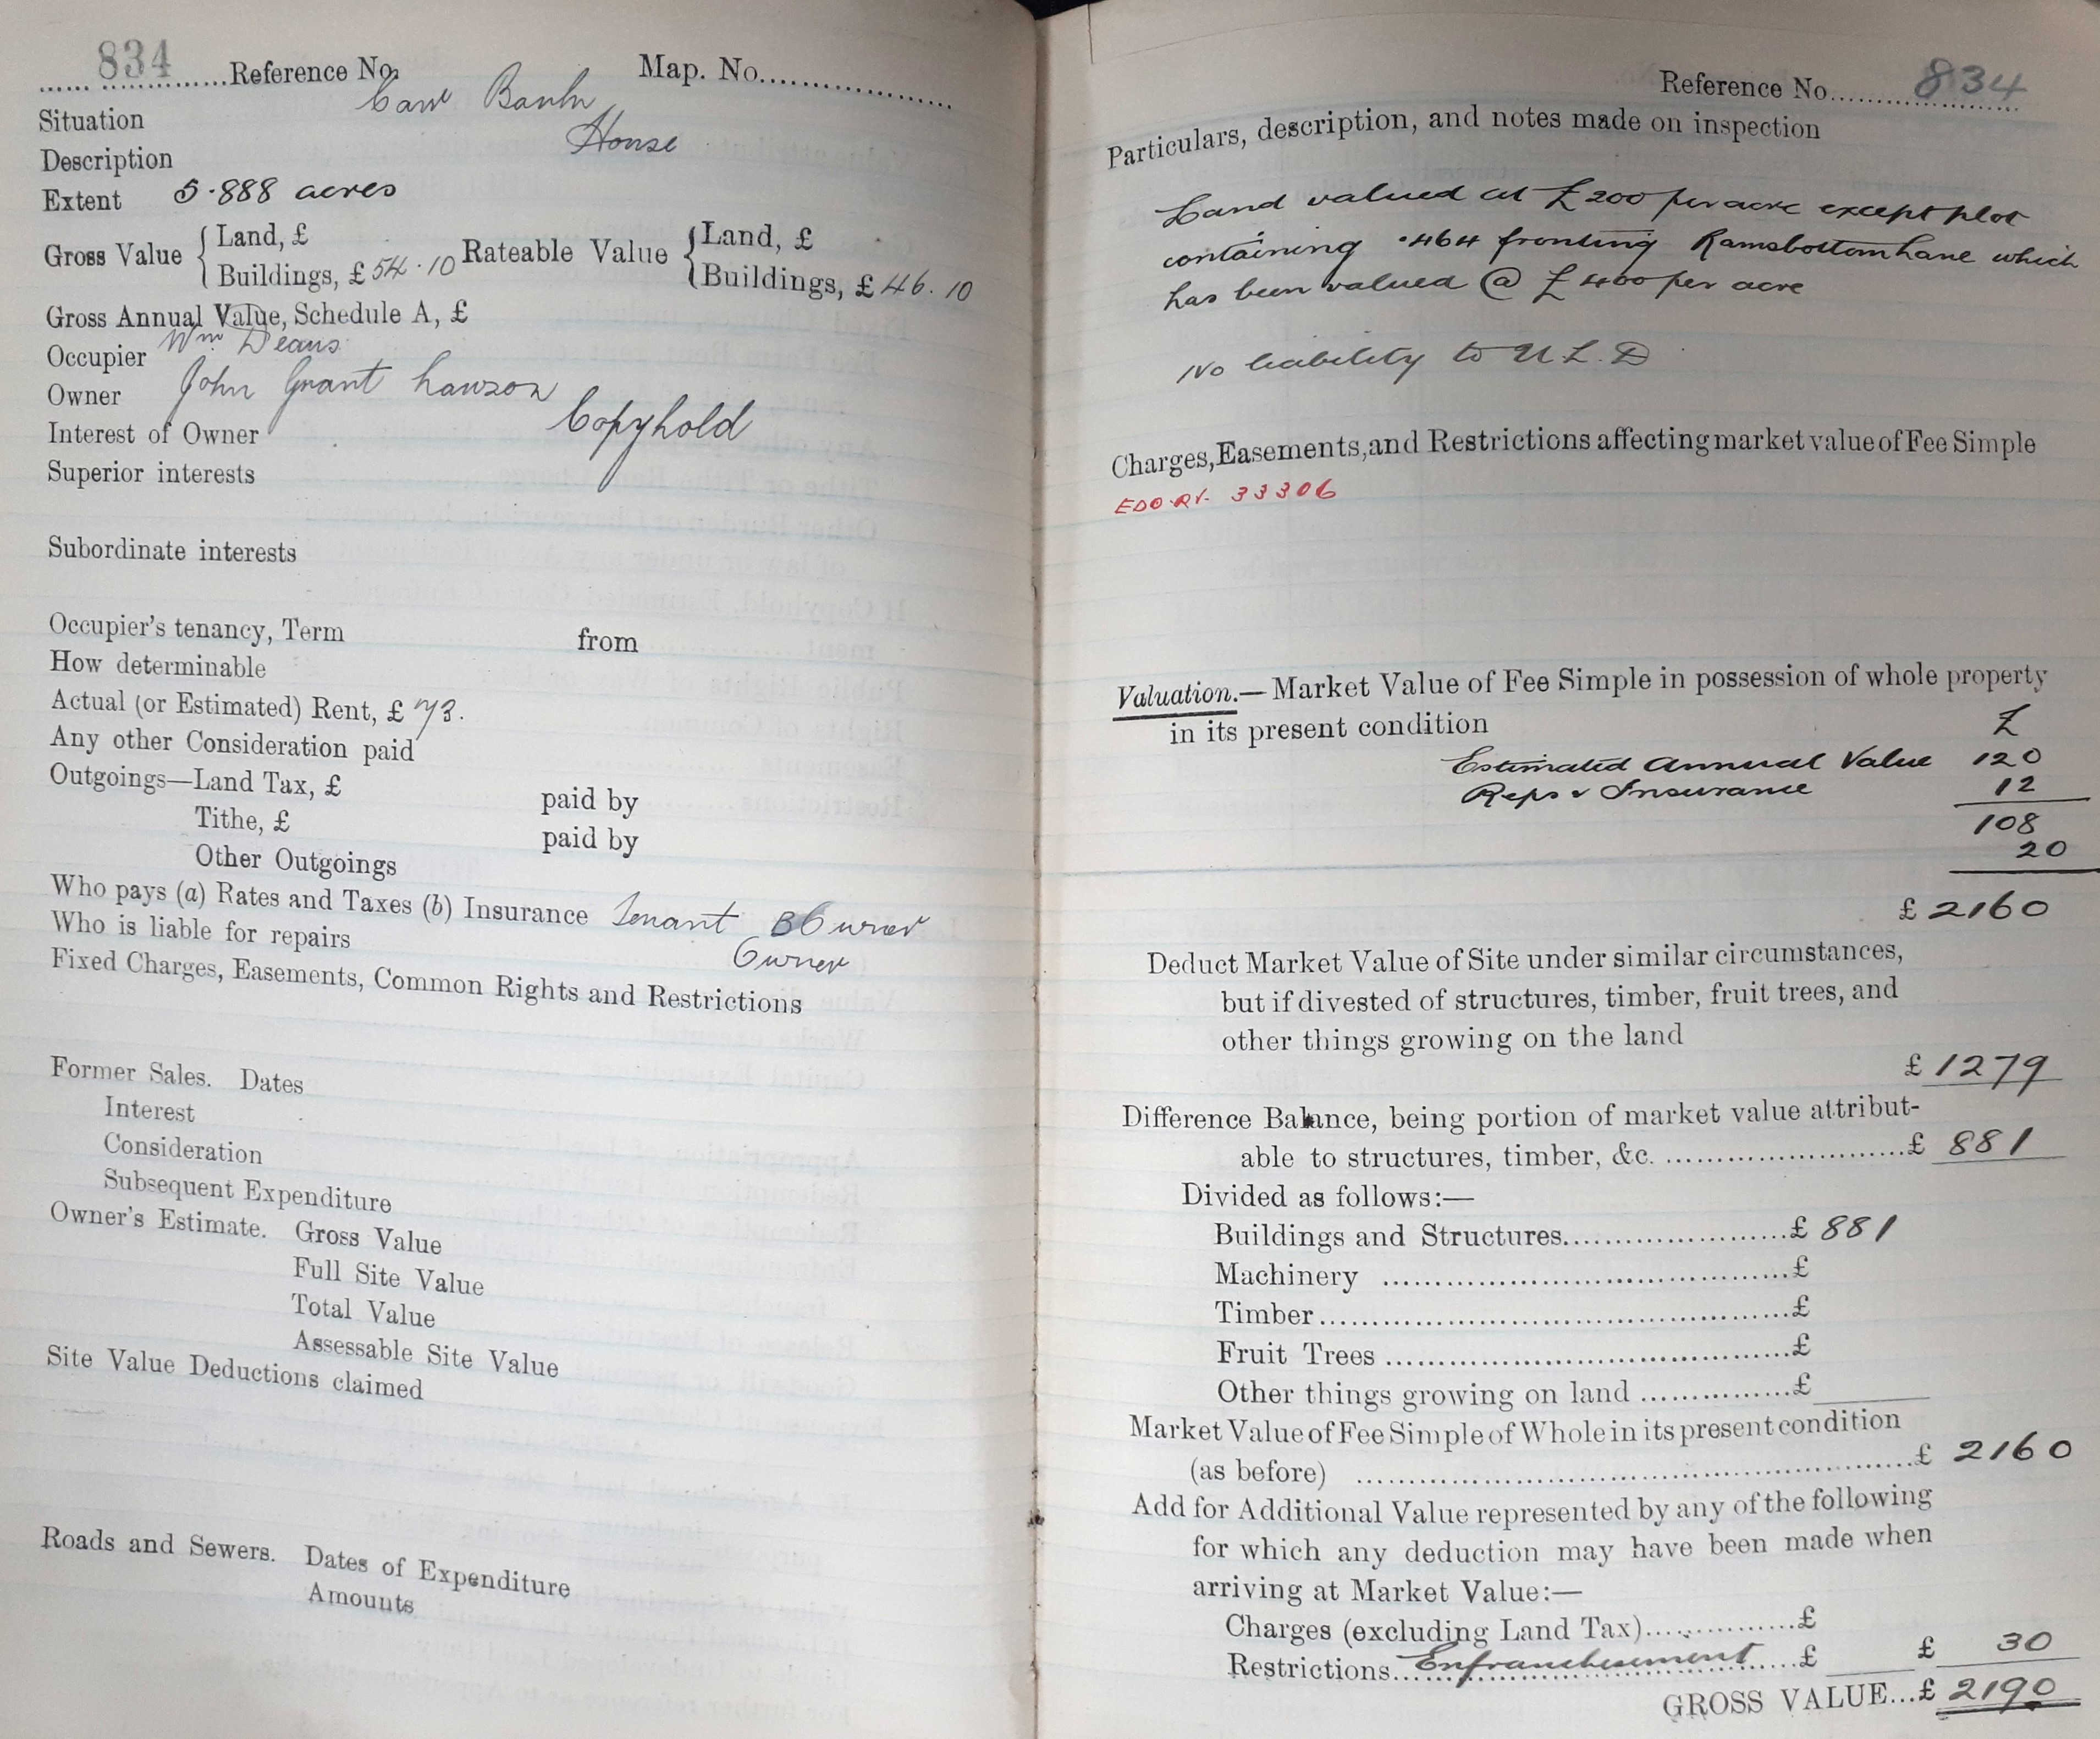 834 Reference No. Map. No.
Situation Carr Bank
Description House
Extent 5.888 acres
Gross Value { Land, £ Rateable Value { Land, £
Buildings, £ 54.10 Buildings, £ 46.10
Gross Annual Value, Schedule A, £
Occupier Wm Deans
Owner John Grant Lawson
Interest of Owner Copyhold
Superior interests
Subordinate interests
Occupier's tenancy, Term from
How determinable
Actual (or Estimated) Rent, £ 73.
Any other Consideration paid
Outgoings—Land Tax, £ paid by
Tithe, £ paid by
Other Outgoings
Who pays (a) Rates and Taxes (b) Insurance Tenant B Owner
Who is liable for repairs Owner
Fixed Charges, Easements, Common Rights and Restrictions
Former Sales. Dates
Interest
Consideration
Subsequent Expenditure
Owner's Estimate. Gross Value
Full Site Value
Total Value
Assessable Site Value
Site Value Deductions claimed
Roads and Sewers. Dates of Expenditure
Amounts
Reference No. 834
Particulars, description, and notes made on inspection
Land valued at £200 per acre except plot
containing .464 fronting Ramsbottom Lane which
has been valued @ £400 per acre
No liability to U.L.D
Charges, Easements, and Restrictions affecting market value of Fee Simple
33306
Valuation.—Market Value of Fee Simple in possession of whole property
in its present condition £
Estimated Annual Value 120
Reps & Insurance 12
108
20
£ 2160
Deduct Market Value of Site under similar circumstances,
but if divested of structures, timber, fruit trees, and
other things growing on the land
£ 1279
Difference Balance, being portion of market value attribut-
able to structures, timber, &c. £ 881
Divided as follows:—
Buildings and Structures £ 881
Machinery £
Timber £
Fruit Trees £
Other things growing on land £
Market Value of Fee Simple of Whole in its present condition
(as before) £ 2160
Add for Additional Value represented by any of the following
for which any deduction may have been made when
arriving at Market Value:—
Charges (excluding Land Tax) £
Restrictions Enfranchisement £ £ 30
GROSS VALUE...£ 2190